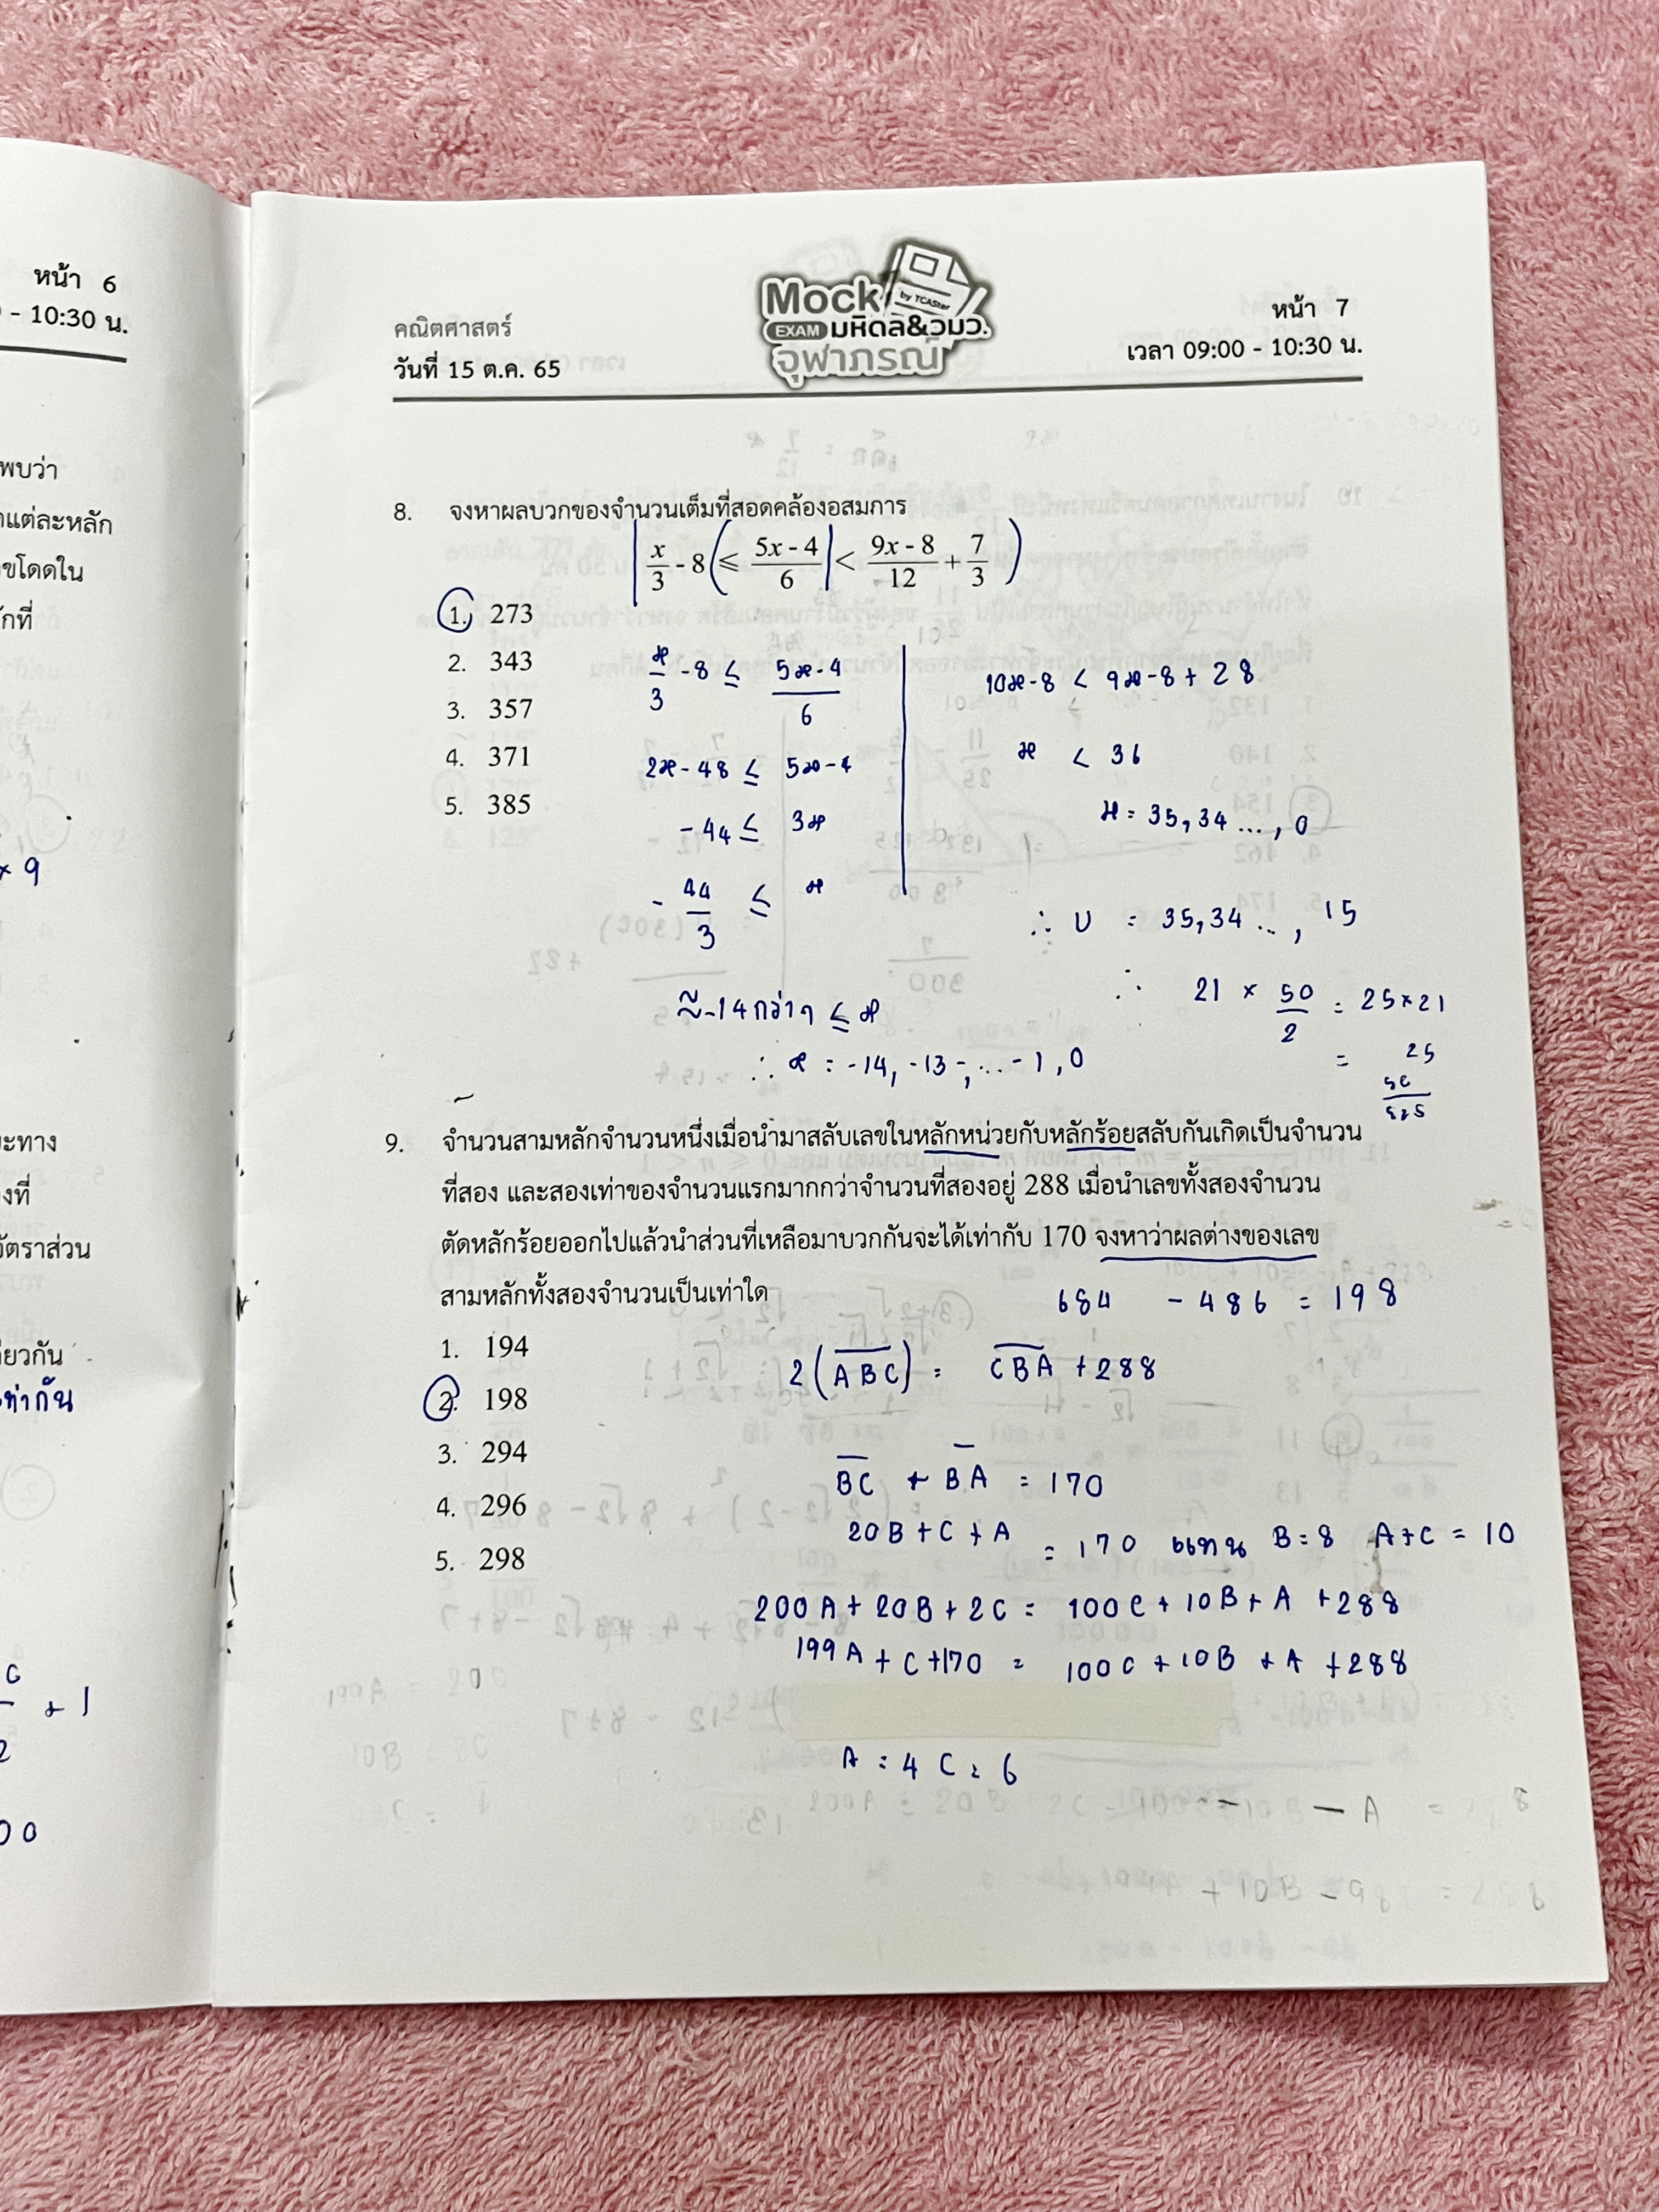 หน้า 6
- 10:30 น.
พบว่า
แต่ละหลัก
ขโดดใน
ักที่
× 9
ะทาง
งที่
ัตราส่วน
ียวกัน
เท่ากัน
+ 1
2
00
คณิตศาสตร์
วันที่ 15 ต.ค. 65
Mock
by TCASter
EXAM มหิดล&วมว.
จุฬาภรณ์
หน้า 7
เวลา 09:00 - 10:30 น.
8. จงหาผลบวกของจำนวนเต็มที่สอดคล้องอสมการ
x/3 - 8 ≤ (5x - 4)/6 < (9x - 8)/12 + 7/3
1. 273
2. 343
3. 357
4. 371
5. 385
x/3 - 8 ≤ (5x - 4)/6
2x - 48 ≤ 5x - 4
- 44 ≤ 3x
- 44/3 ≤ x
≈ -14 กว่าๆ ≤ x
∴ x = -14, -13, ... -1, 0
10x - 8 < 9x - 8 + 28
x < 36
x = 35, 34 ..., 0
∴ U = 35, 34 ..., 15
∴ 21 × 50/2 = 25 × 21
= 25
50
525
9. จำนวนสามหลักจำนวนหนึ่งเมื่อนำมาสลับเลขในหลักหน่วยกับหลักร้อยสลับกันเกิดเป็นจำนวน
ที่สอง และสองเท่าของจำนวนแรกมากกว่าจำนวนที่สองอยู่ 288 เมื่อนำเลขทั้งสองจำนวน
ตัดหลักร้อยออกไปแล้วนำส่วนที่เหลือมาบวกกันจะได้เท่ากับ 170 จงหาว่าผลต่างของเลข
สามหลักทั้งสองจำนวนเป็นเท่าใด
684 - 486 = 198
1. 194
2. 198
3. 294
4. 296
5. 298
2(ABC) = CBA + 288
BC + BA = 170
20B + C + A = 170 แทน B = 8 A + C = 10
200A + 20B + 2C = 100C + 10B + A + 288
199A + C + 170 = 100C + 10B + A + 288
A = 4 C = 6